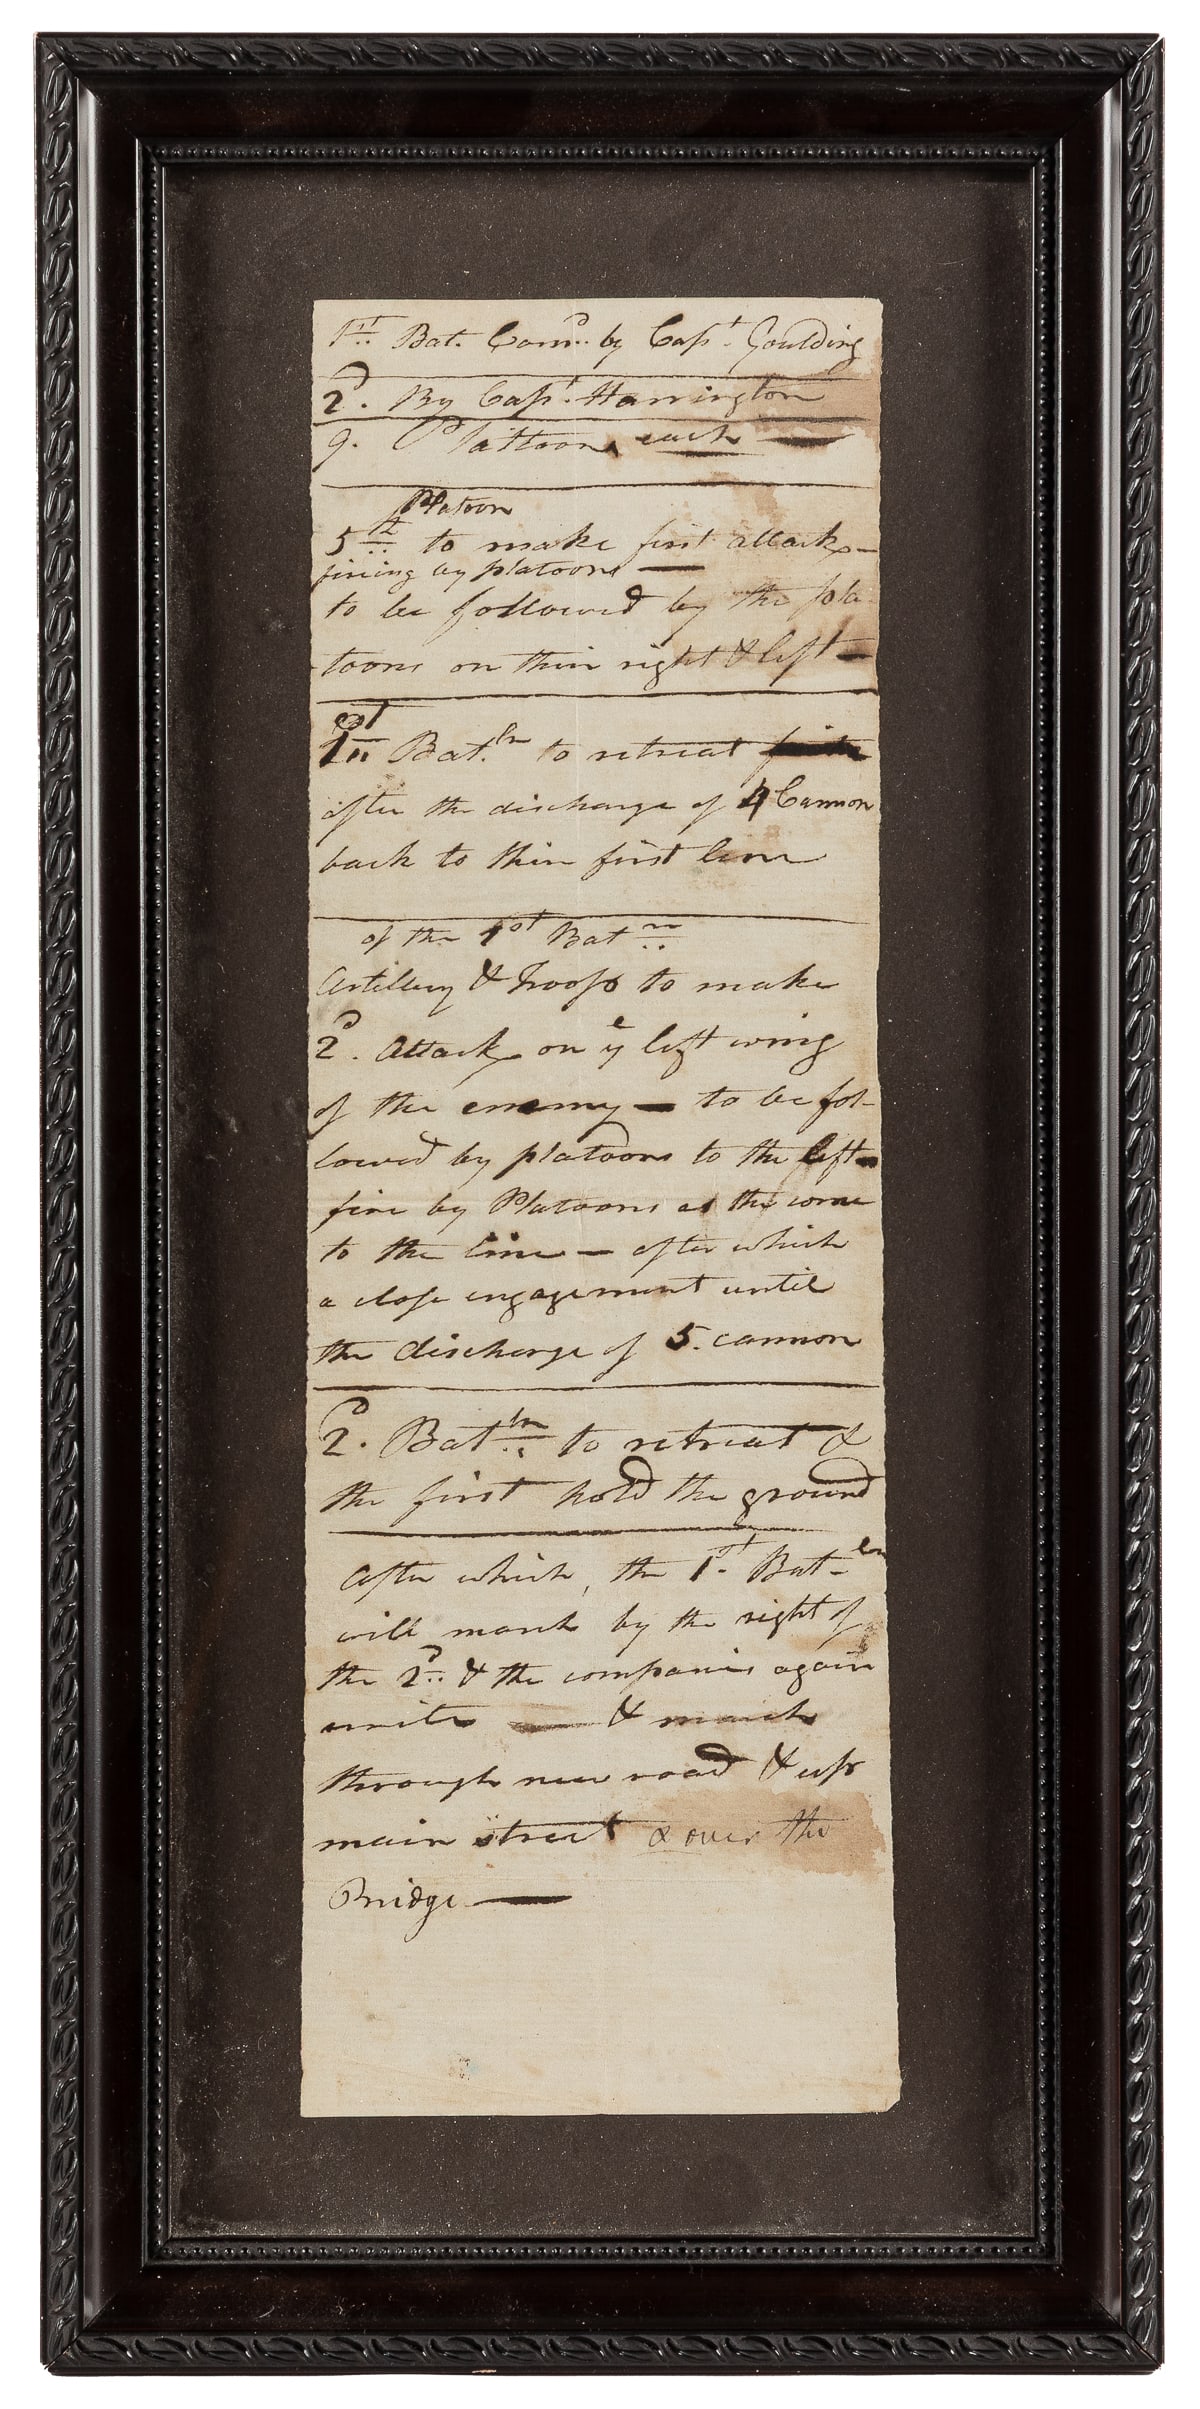 1st Bat. Comd. by Capt. Goulding
2d. By Capt. Harrington
9. Plattoons each —
Platoon
5th to make first attack —
firing by platoons —
to be followed by the pla
toons on thier right & left —
1st Batln to retreat
after the discharge of 4 Cannon
back to thier first line
of the 1st Batn
Artillery & Troops to make
2d. Attack on ye left wing
of the enemy — to be fol-
lowed by platoons to the left —
fire by Platoons as the come
to the line — after which
a close engagement until
the discharge of 5. cannon
2d. Batln to retreat &
the first hold the ground
After which, the 1st. Batln
will march by the right of
the 2d & the companies again
unite — & march
through new road & up
main street & over the
Bridge —